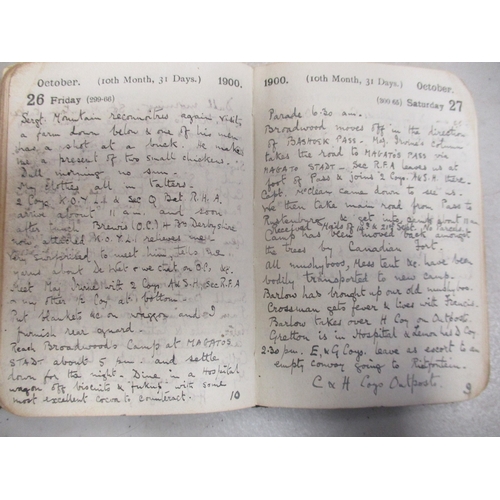 October. (10th Month, 31 Days.) 1900.
26 Friday (299-66)
Sergt Mountain reconnoitres again visits
a farm down below & one of his men
has a shot at a buck. He makes
me a present of two small chickens.
Dull morning no sun
My clothes all in tatters.
2 Coys K.O.Y.L.I & Sec Q Bat. R.H.A.
arrive about 11 am and soon
after lunch Brewis (O.C.) &
attached K.O.Y.L.I relieves me
to meet him, talks
about De Wet & we chat on B.P. &c.
Meet May 2 Coys A & S.H. Sec R.F.A
other E Coy at bottom
Put blankets &c on waggon and I
furnish rear guard.
Reach Broadwood's Camp at MAGATOS
STADT about 5 pm and settle
down for the night. Dine in a Hospital
wagon off biscuits & with some
most excellent cocoa to counteract.
10
1900. (10th Month, 31 Days.) October.
(300-65) Saturday 27
Parade 6.30 am.
Broadwood moves off in the direction
of PASS. Maj. column
takes the road to MAGATOS PASS via
MAGATO STADT. Sec R.F.A leaves us at
foot of Pass & joins 2 Coys A&S.H there.
Capt. McClean came down to see us.
We then take main road from Pass to
Rustenburg & get into camp about 11 am
Received Mails of 14th & 21st Sept. No Parcels
Camp has been moved back amongst
the trees by Canadian Fort.
All Mess tent &c have been
bodily transported to new camp.
Barlow has brought up our old
Crossman gets fever & lives with Francis.
Barlow takes over H Coy on Outposts.
Gretton is in Hospital & D Coy
2.30 pm. E. & G Coys. leave as escort to an
empty convoy going to
C & H Coys Outposts.
9